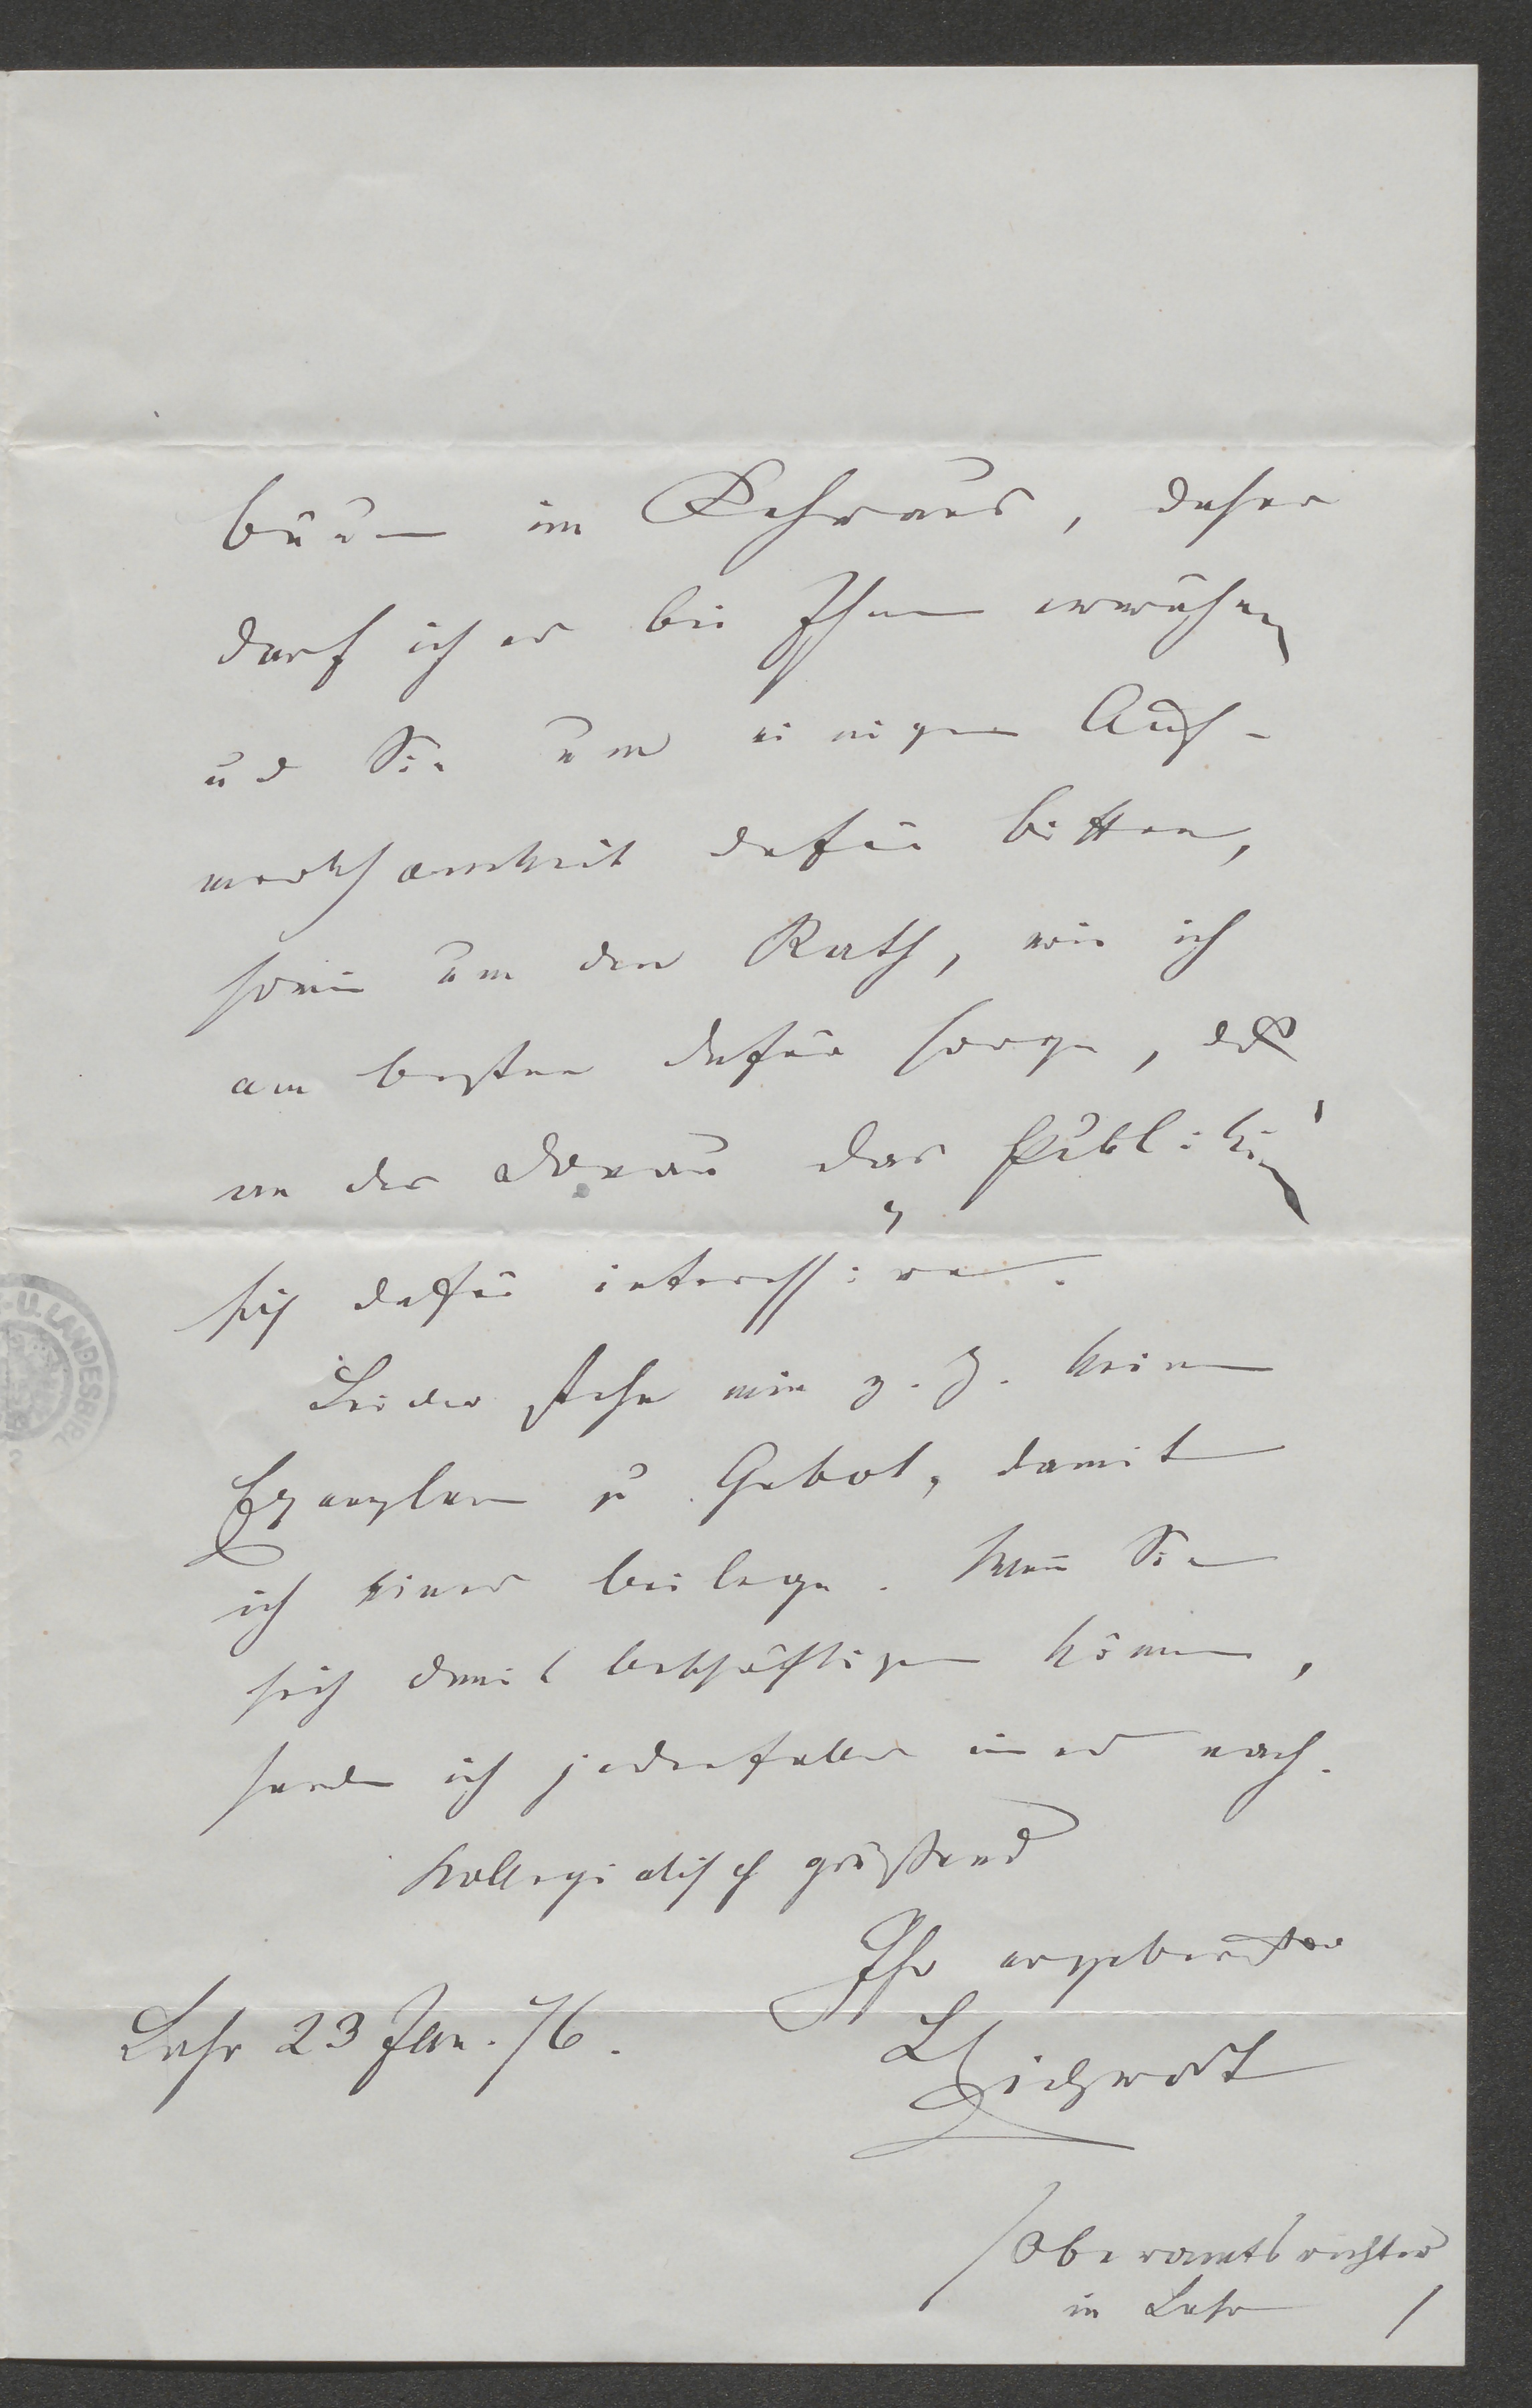 bäum im Kehraus, daher
darf ich es bei Ihnen erwähnen
und Sie um einige Auf-
merksamkeit dafür bitten,
sowie um den Rath, wie ich
am besten dafür sorge, daß
an der Donau das Publikum
sich dafür interessire.
Leider stehn mir z. Z. keine
Exemplare zu Gebot, damit
ich eines beilege. Wenn Sie
sich damit beschäftigen können,
sende ich jedenfalls eines nach.
Kollegialisch grüßend
Ihr ergebenster
L Eichrodt
Lahr 23 Jan. 76.
/Oberamtsrichter
in Lahr /
U. LANDESBIBL